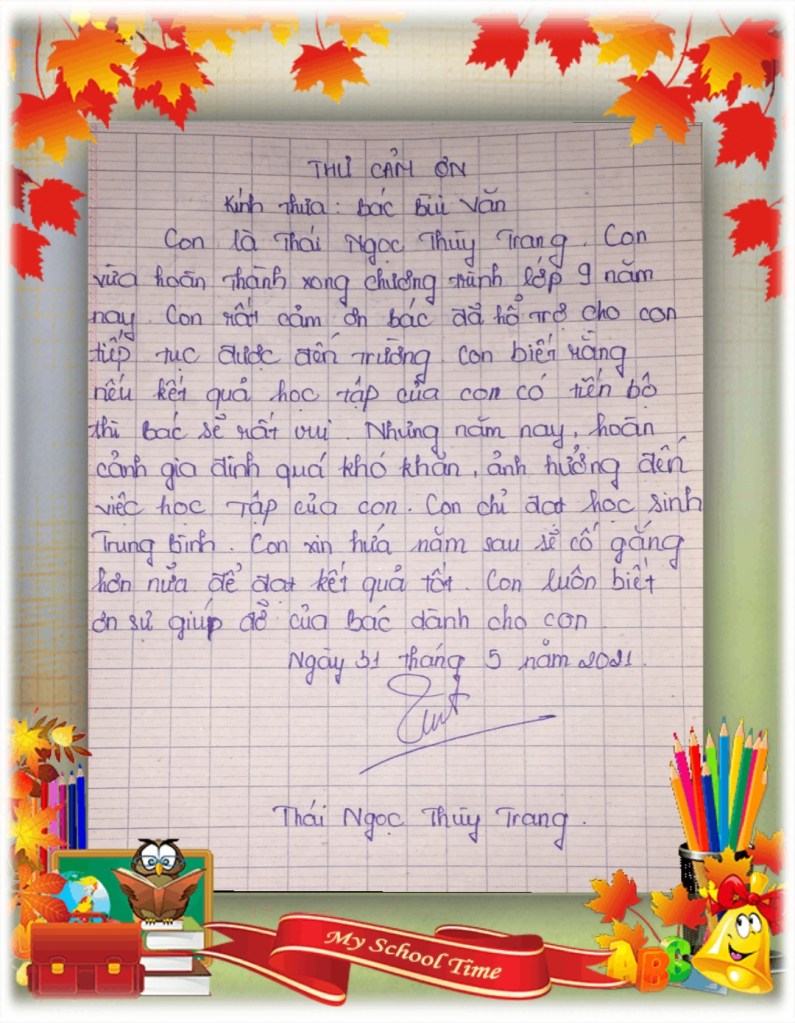 THƯ CẢM ƠN
Kính thưa: Bác Bùi Văn
Con là Thái Ngọc Thùy Trang. Con
vừa hoàn thành xong chương trình lớp 9 năm
nay. Con rất cảm ơn bác đã hổ trợ cho con
tiếp tục được đến trường. Con biết rằng
nếu kết quả học tập của con có tiến bộ
thì bác sẽ rất vui. Nhưng năm nay, hoàn
cảnh gia đình quá khó khăn, ảnh hưởng đến
việc học tập của con. Con chỉ đạt học sinh
Trung Bình. Con xin hứa năm sau sẽ cố gắng
hơn nữa để đạt kết quả tốt. Con luôn biết
ơn sự giúp đỡ của bác dành cho con.
Ngày 31 tháng 5 năm 2021.
Thái Ngọc Thùy Trang.
My School Time
ABC